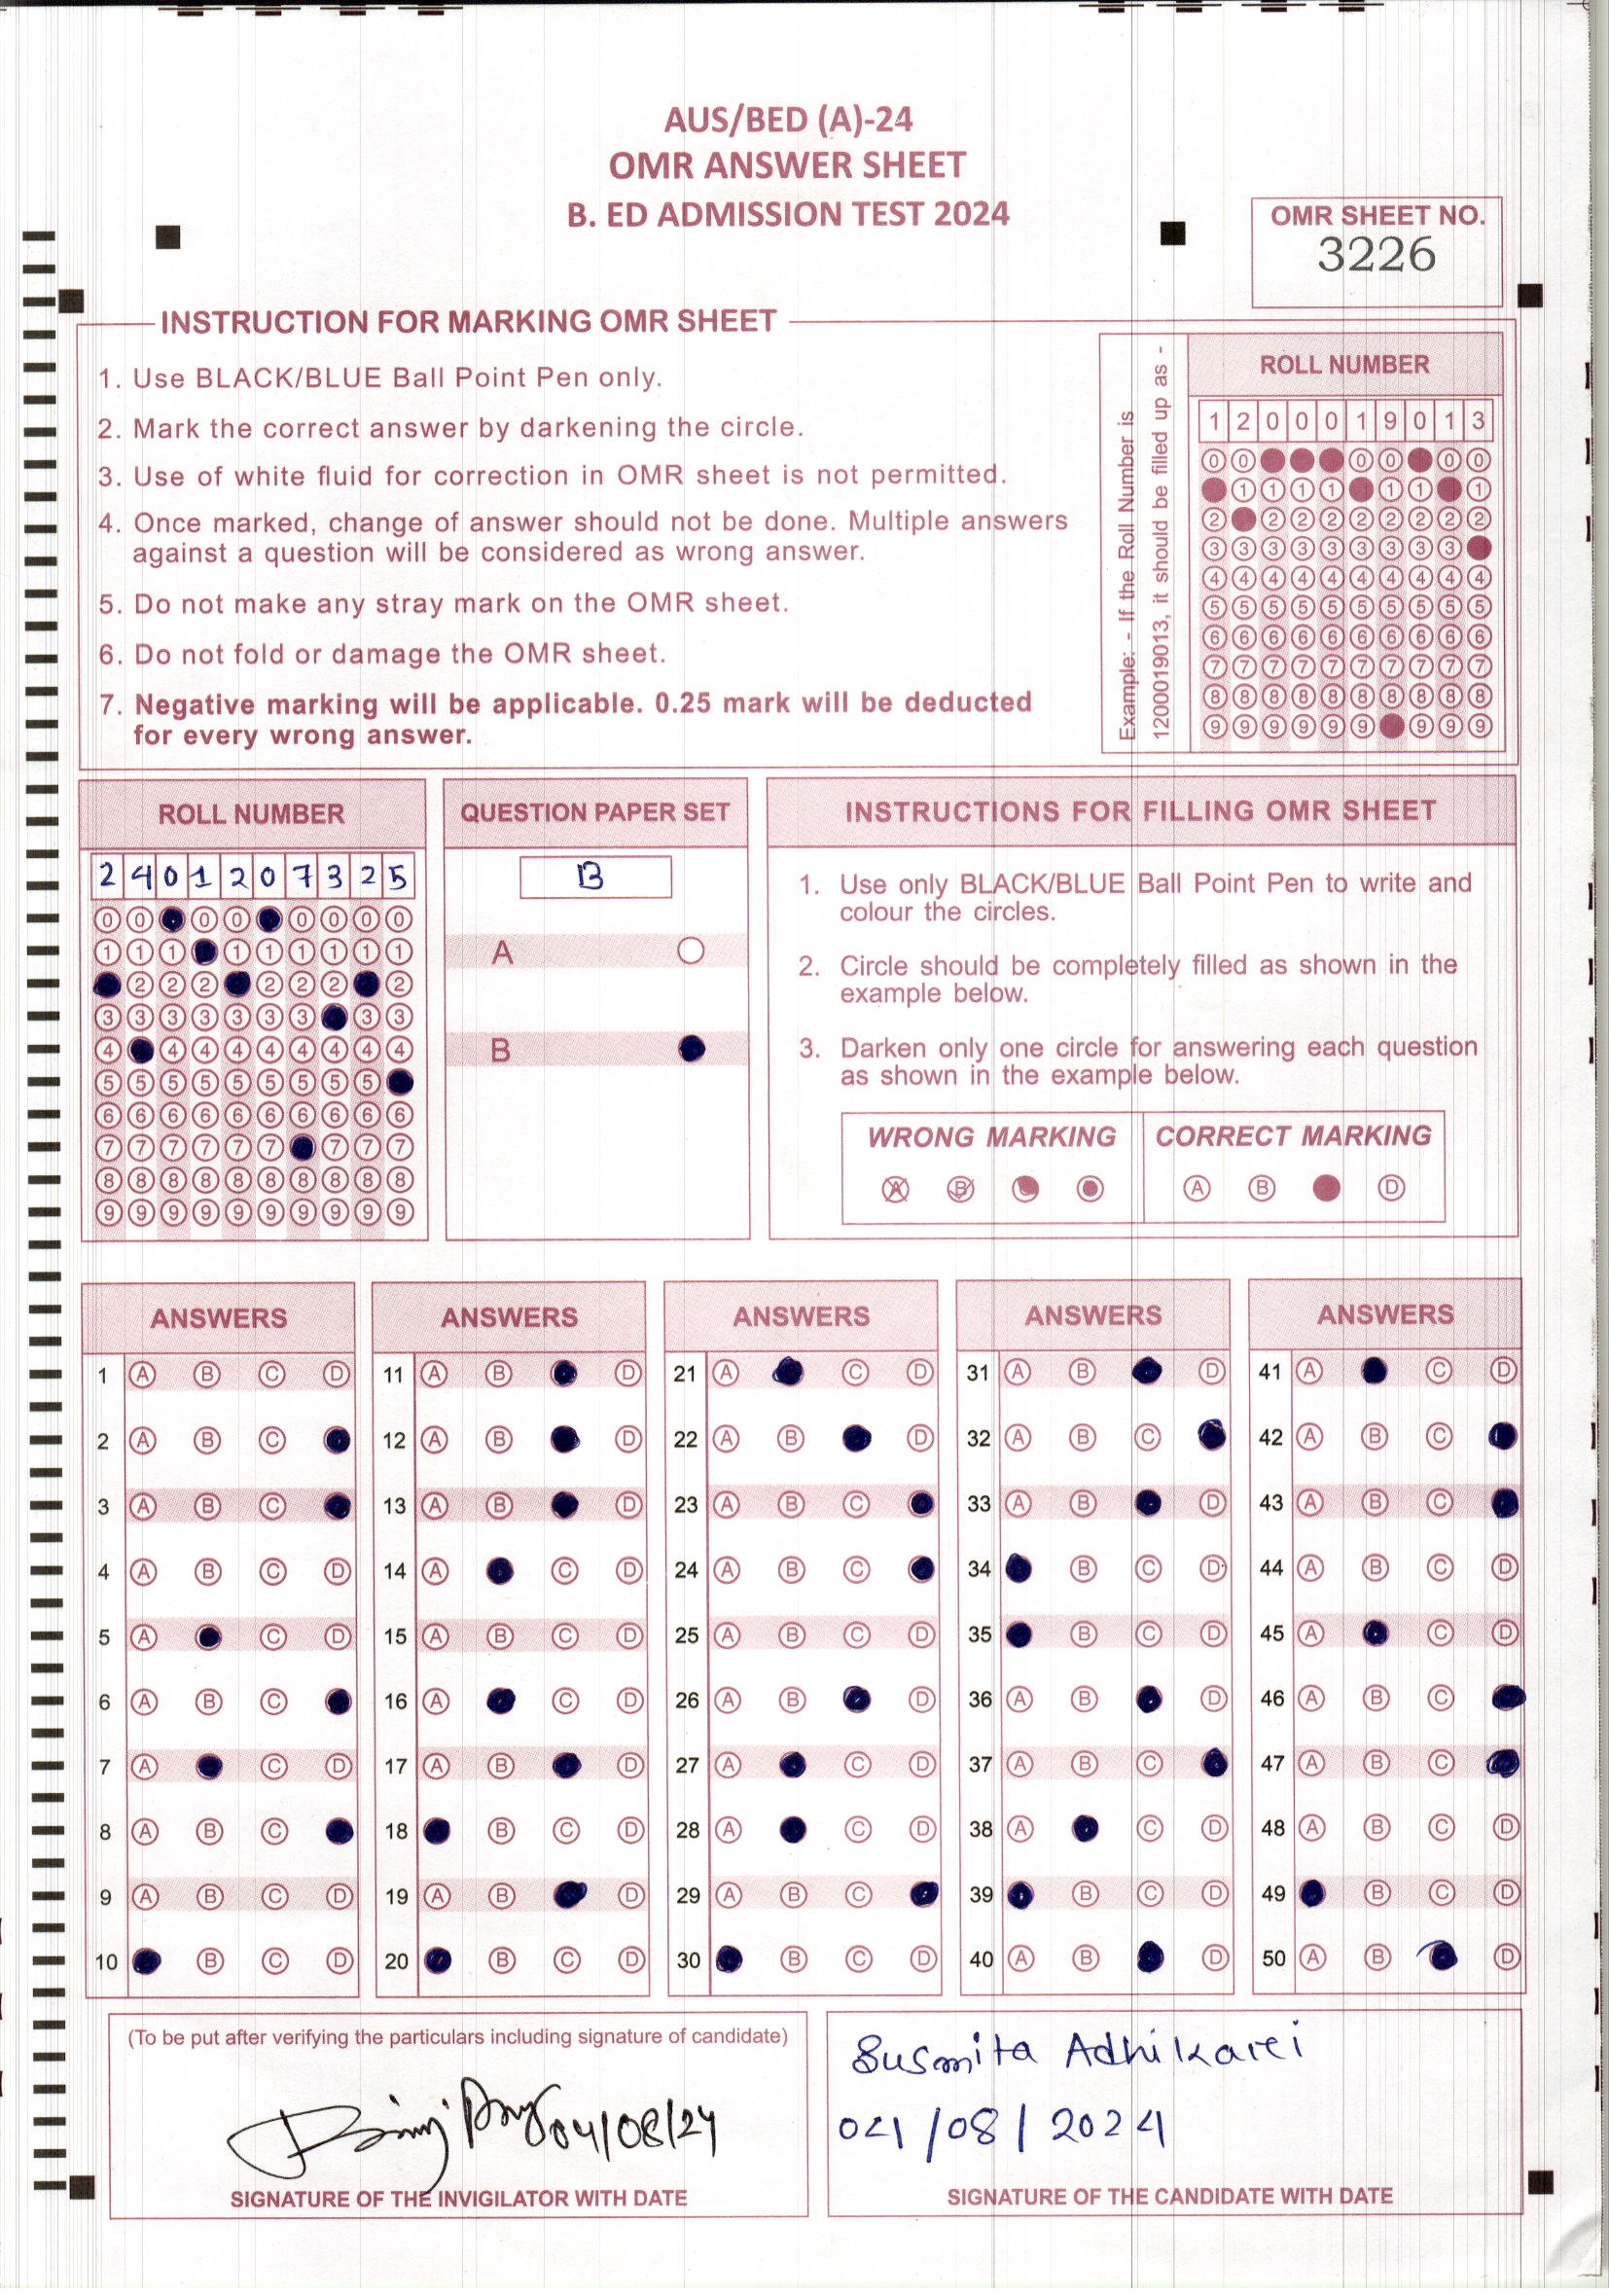 AUS/BED (A)-24
OMR ANSWER SHEET
B. ED ADMISSION TEST 2024
OMR SHEET NO.
3226
INSTRUCTION FOR MARKING OMR SHEET
1. Use BLACK/BLUE Ball Point Pen only.
2. Mark the correct answer by darkening the circle.
3. Use of white fluid for correction in OMR sheet is not permitted.
4. Once marked, change of answer should not be done. Multiple answers
against a question will be considered as wrong answer.
5. Do not make any stray mark on the OMR sheet.
6. Do not fold or damage the OMR sheet.
7. Negative marking will be applicable. 0.25 mark will be deducted
for every wrong answer.
Example: - If the Roll Number is
1200019013, it should be filled up as -
ROLL NUMBER
1 2 0 0 0 1 9 0 1 3
0 0 0 0 0 0
1 1 1 1 1 1 1
2 2 2 2 2 2 2 2 2
3 3 3 3 3 3 3 3 3
4 4 4 4 4 4 4 4 4 4
5 5 5 5 5 5 5 5 5 5
6 6 6 6 6 6 6 6 6 6
7 7 7 7 7 7 7 7 7 7
8 8 8 8 8 8 8 8 8 8
9 9 9 9 9 9 9 9 9
ROLL NUMBER
2 4 0 1 2 0 7 3 2 5
0 0 0 0 0 0 0 0
1 1 1 1 1 1 1 1 1
2 2 2 2 2 2 2
3 3 3 3 3 3 3 3 3
4 4 4 4 4 4 4 4 4
5 5 5 5 5 5 5 5 5
6 6 6 6 6 6 6 6 6 6
7 7 7 7 7 7 7 7 7
8 8 8 8 8 8 8 8 8 8
9 9 9 9 9 9 9 9 9 9
QUESTION PAPER SET
B
A
B
INSTRUCTIONS FOR FILLING OMR SHEET
1. Use only BLACK/BLUE Ball Point Pen to write and
colour the circles.
2. Circle should be completely filled as shown in the
example below.
3. Darken only one circle for answering each question
as shown in the example below.
WRONG MARKING
A B
CORRECT MARKING
A B D
ANSWERS
1 A B C D
2 A B C
3 A B C
4 A B C D
5 A C D
6 A B C
7 A C D
8 A B C
9 A B C D
10 B C D
ANSWERS
11 A B D
12 A B D
13 A B D
14 A C D
15 A B C D
16 A C D
17 A B D
18 B C D
19 A B D
20 B C D
ANSWERS
21 A C D
22 A B D
23 A B C
24 A B C
25 A B C D
26 A B D
27 A C D
28 A C D
29 A B C
30 B C D
ANSWERS
31 A B D
32 A B C
33 A B D
34 B C D
35 B C D
36 A B D
37 A B C
38 A C D
39 B C D
40 A B D
ANSWERS
41 A C D
42 A B C
43 A B C
44 A B C D
45 A C D
46 A B C
47 A B C
48 A B C D
49 B C D
50 A B D
(To be put after verifying the particulars including signature of candidate)
04/08/24
SIGNATURE OF THE INVIGILATOR WITH DATE
Susmita Adhikari
04/08/2024
SIGNATURE OF THE CANDIDATE WITH DATE